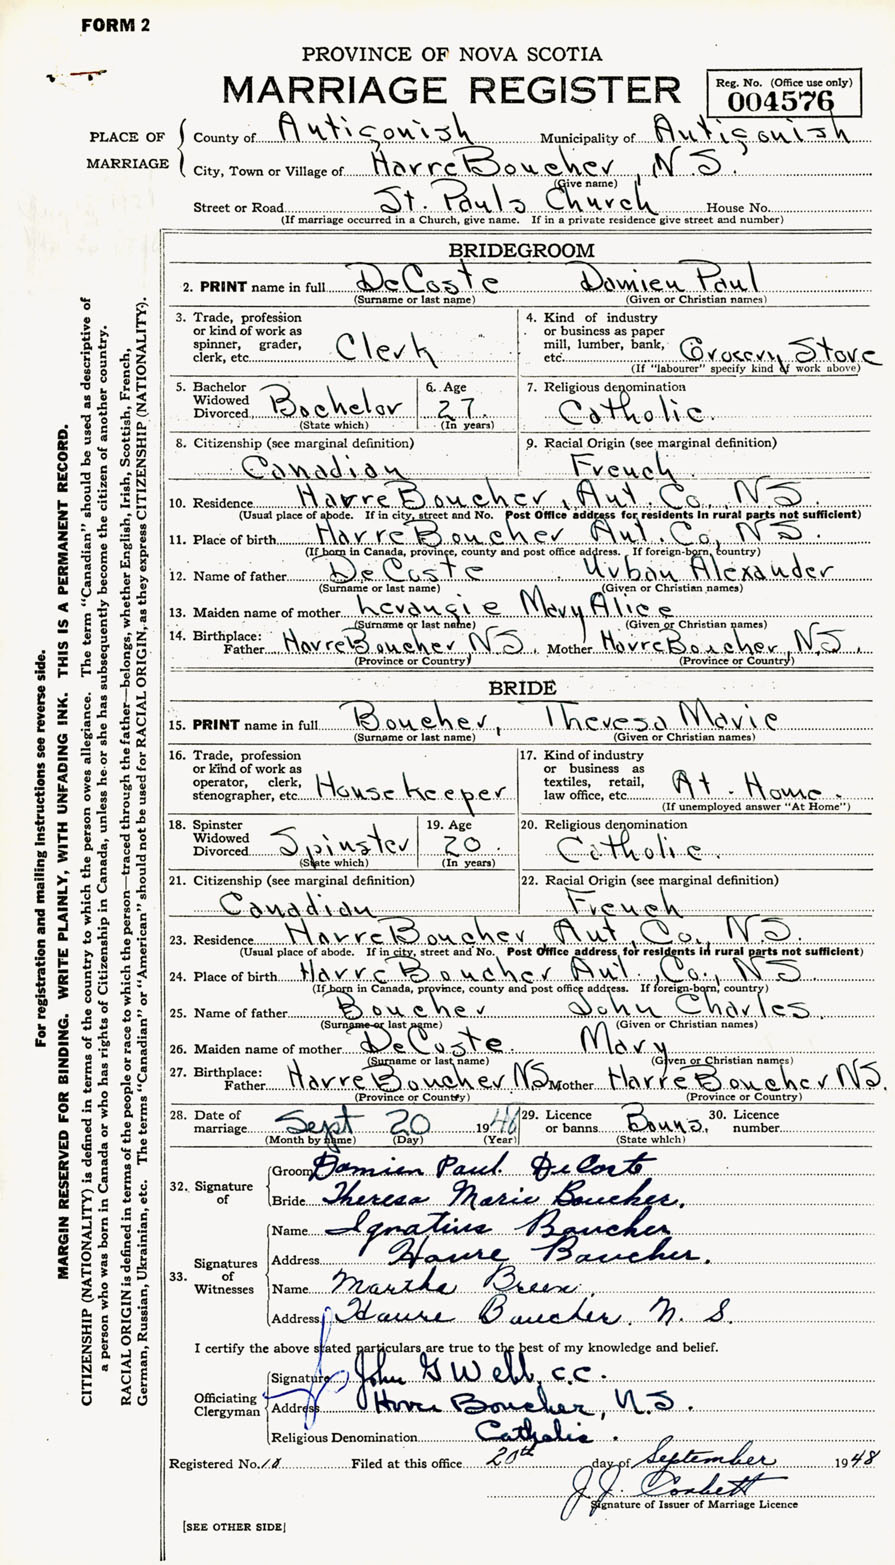 FORM 2
PROVINCE OF NOVA SCOTIA
MARRIAGE REGISTER
Reg. No. (Office use only)
004576
PLACE OF MARRIAGE
County of Antigonish Municipality of Antigonish
City, Town or Village of Havre Boucher, N.S.
(Give name)
Street or Road St. Pauls Church House No.
(If marriage occurred in a Church, give name. If in a private residence give street and number)
BRIDEGROOM
2. PRINT name in full DeCoste Damien Paul
(Surname or last name) (Given or Christian names)
3. Trade, profession or kind of work as spinner, grader, clerk, etc. Clerk
4. Kind of industry or business as paper mill, lumber, bank, etc. Grocery Store
(If "labourer" specify kind of work above)
5. Bachelor Widowed Divorced Bachelor
(State which)
6. Age 27
(In years)
7. Religious denomination
Catholic.
8. Citizenship (see marginal definition)
Canadian
9. Racial Origin (see marginal definition)
French
10. Residence Havre Boucher, Ant. Co., N.S.
(Usual place of abode. If in city, street and No. Post Office address for residents in rural parts not sufficient)
11. Place of birth Havre Boucher Ant. Co, N.S.
(If born in Canada, province, county and post office address. If foreign-born, country)
12. Name of father DeCoste Urban Alexander
(Surname or last name) (Given or Christian names)
13. Maiden name of mother Levangie Mary Alice
(Surname or last name) (Given or Christian names)
14. Birthplace: Father Havre Boucher, N.S. Mother Havre Boucher, N.S.
(Province or Country) (Province or Country)
BRIDE
15. PRINT name in full Boucher, Theresa Marie
(Surname or last name) (Given or Christian names)
16. Trade, profession or kind of work as operator, clerk, stenographer, etc. Housekeeper
17. Kind of industry or business as textiles, retail, law office, etc. At Home
(If unemployed answer "At Home")
18. Spinster Widowed Divorced Spinster
(State which)
19. Age 20
(In years)
20. Religious denomination
Catholic.
21. Citizenship (see marginal definition)
Canadian
22. Racial Origin (see marginal definition)
French
23. Residence Havre Boucher Ant. Co., N.S.
(Usual place of abode. If in city, street and No. Post Office address for residents in rural parts not sufficient)
24. Place of birth Havre Boucher Ant. Co., N.S.
(If born in Canada, province, county and post office address. If foreign-born, country)
25. Name of father Boucher John Charles
(Surname or last name) (Given or Christian names)
26. Maiden name of mother DeCoste. Mary
(Surname or last name) (Given or Christian names)
27. Birthplace: Father Havre Boucher NS Mother Havre Boucher NS.
(Province or Country) (Province or Country)
28. Date of marriage Sept 20 1948
(Month by name) (Day) (Year)
29. Licence or banns Banns.
(State which)
30. Licence number
32. Signature of
Groom Damien Paul DeCoste
Bride Theresa Marie Boucher.
33. Signatures of Witnesses
Name Ignatius Boucher
Address Havre Boucher.
Name Martha Breen
Address Havre Boucher. N. S.
I certify the above stated particulars are true to the best of my knowledge and belief.
Officiating Clergyman
Signature John G Webb, c.c.
Address Havre Boucher, N.S.
Religious Denomination Catholic.
Registered No. 18 Filed at this office 20th day of September 1948
J.J. Corbett
Signature of Issuer of Marriage Licence
[SEE OTHER SIDE]
For registration and mailing instructions see reverse side.
MARGIN RESERVED FOR BINDING. WRITE PLAINLY, WITH UNFADING INK. THIS IS A PERMANENT RECORD.
CITIZENSHIP (NATIONALITY) is defined in terms of the country to which the person owes allegiance. The term "Canadian" should be used as descriptive of
a person who was born in Canada or who has rights of Citizenship in Canada, unless he or she has subsequently become the citizen of another country.
RACIAL ORIGIN is defined in terms of the people or race to which the person—traced through the father—belongs, whether English, Irish, Scottish, French,
German, Russian, Ukrainian, etc. The terms "Canadian" or "American" should not be used for RACIAL ORIGIN, as they express CITIZENSHIP (NATIONALITY).